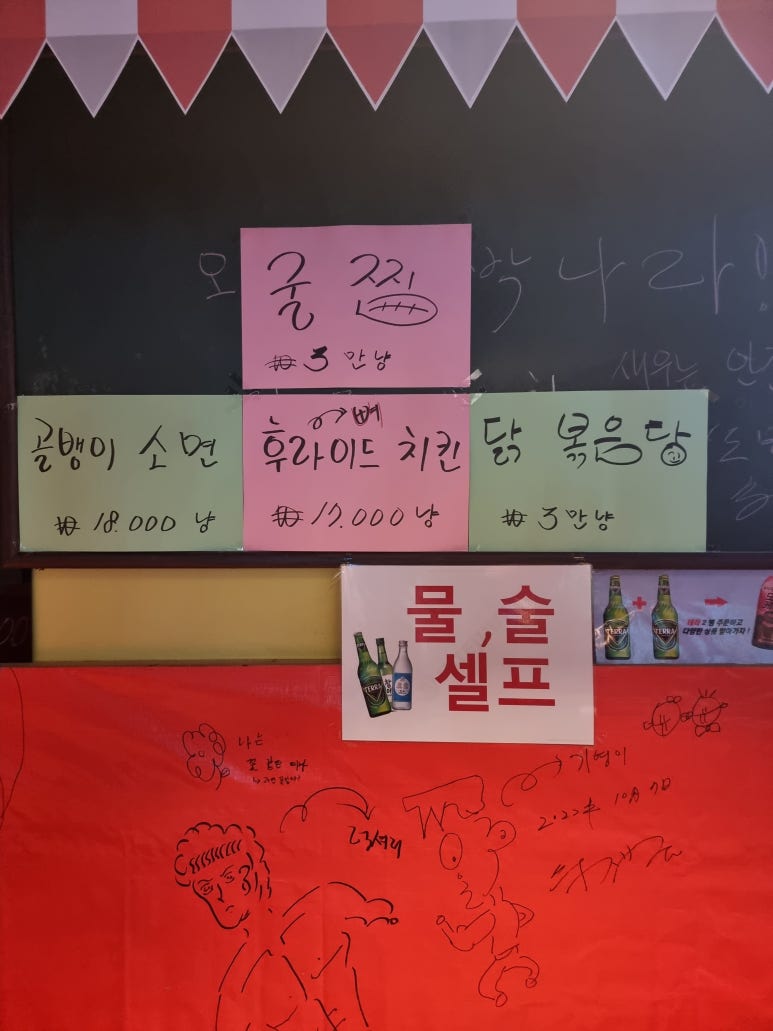 오
나라
새우는
굴 찜
₩ 3 만냥
골뱅이 소면
₩ 18.000 냥
뼈
후라이드 치킨
₩ 17.000 냥
닭 볶음탕
₩ 3만냥
물, 술
셀프
TERRA
TERRA
TERRA
테라 2병 주문하고
다양한 상품 받아가자!
나는
꽃
기영이
10月 7日